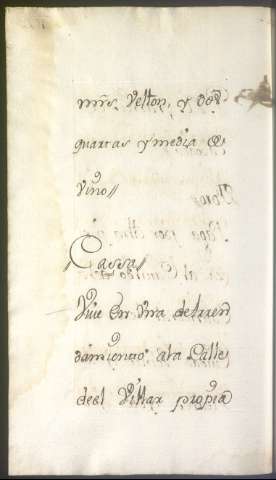 mrs. Vellon, y dos
quartas y media de
vino//
Cassa//
Vive en una de
damiento a la Calle
del Villar propia